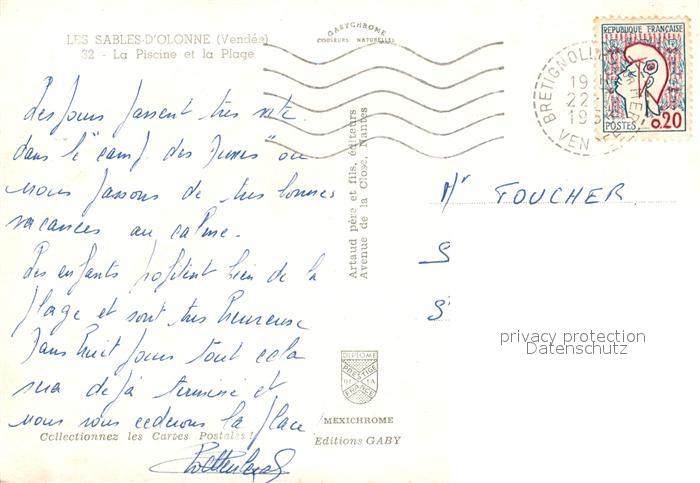 LES SABLES-D'OLONNE (Vendée)
32 - La Piscine et la Plage
Les jours passent très vite
dans le "camp des
nous passons de très bonnes
vacances au calme.
Les enfants profitent bien de la
plage et sont très heureuse
Dans huit jours tout cela
sera déjà terminé et
nous vous cederons la place!
Collectionnez les Cartes Postales!
GABYCHROME
COULEURS NATURELLES
Artaud père et fils, éditeurs
Avenue de la Close, Nantes
DIPLOME
PRESTIGE
DE LA
FRANCE
MEXICHROME
Editions GABY
REPUBLIQUE FRANÇAISE
POSTES 0.20
BRETIGNOLLES
19
22
19
VEN
Mr FOUCHER
S
S
privacy protection
Datenschutz